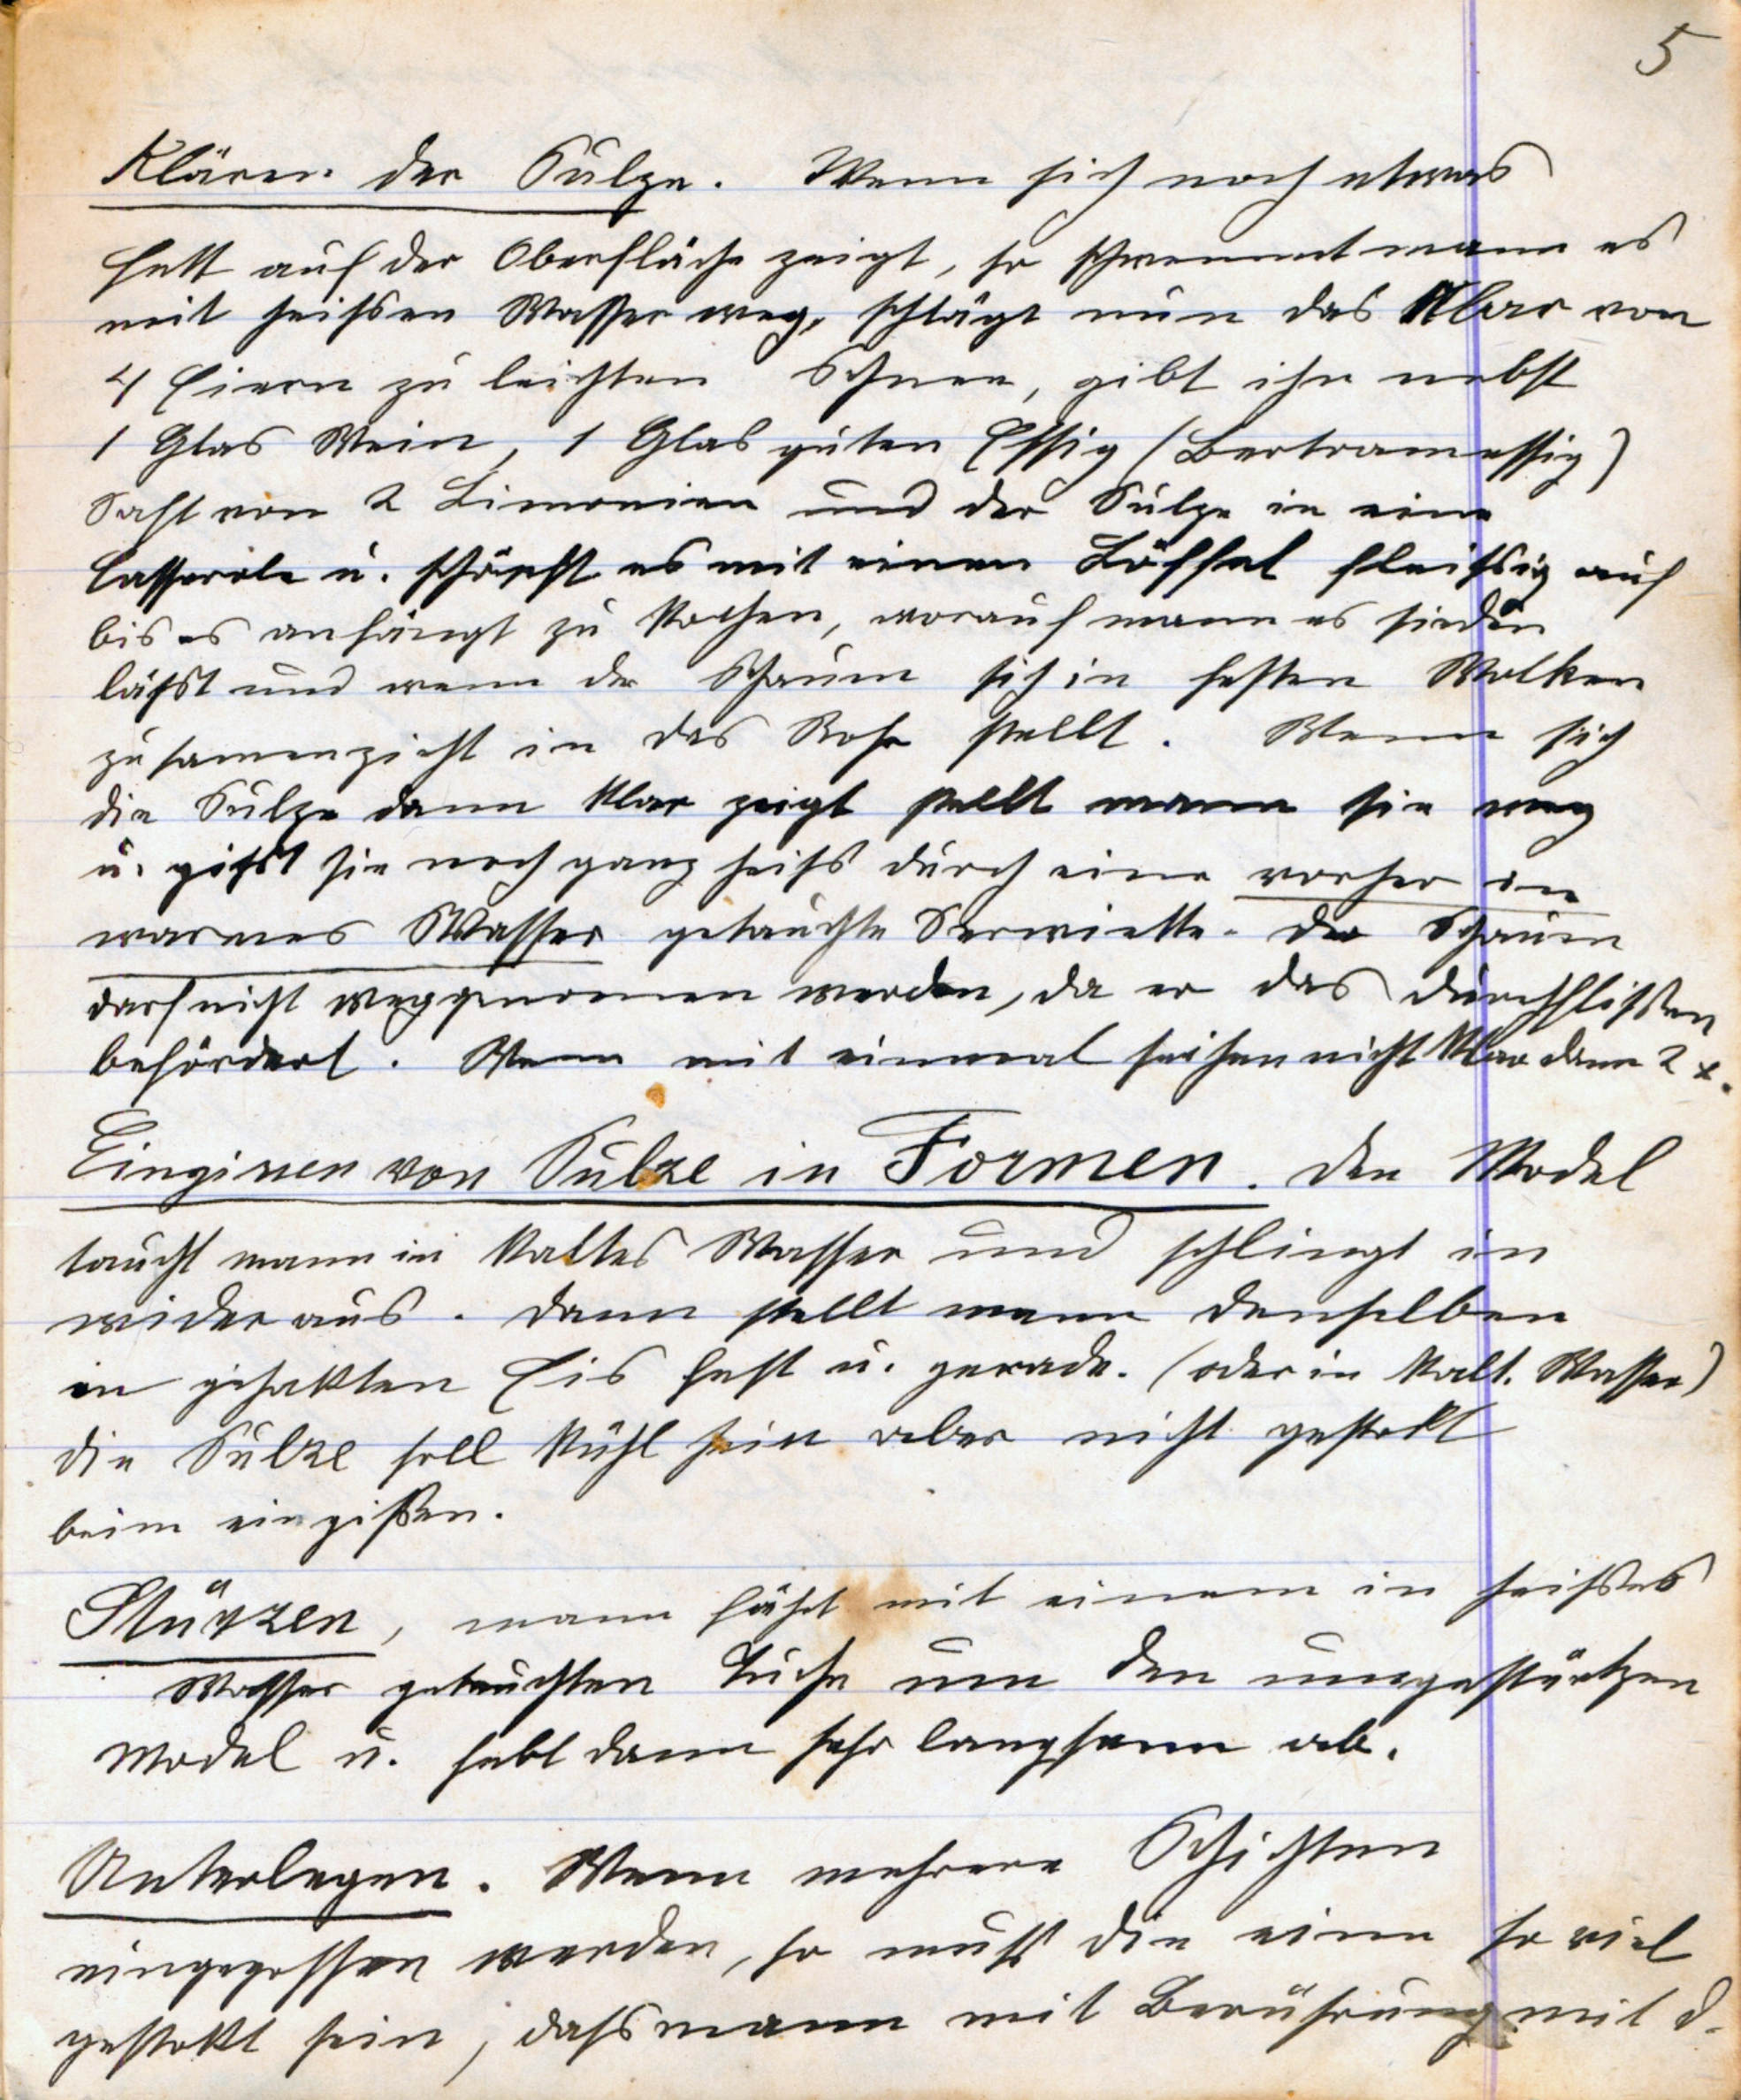 5
Klären der Sulze. Wenn sich noch etwas
Fett auf der Oberfläche zeigt, so schwemmt mann es
mit heissen Wasser weg, schlägt nun das Klar von
4 Eiern zu leichten Schnee, gibt ihn nebst
1 Glas Wein, 1 Glas guten Essig (Bertramessig)
Saft von 2 Limonien und der Sulze in eine
Casserole u. schöpft es mit einen Löffel fleissig auf
bis es anfängt zu kochen, worauf mann es sieden
lässt und wenn der Schaum sich in festen Wolken
zusamenzieht in das Rohr stellt. Wenn sich
die Sulze dann klar zeigt stellt mann sie weg
u. gisst sie noch ganz heiss durch eine vorher in
warmes Wasser getauchte Serviette. Der Schaum
darf nicht weggenomen werden, da er das durchflissen
befördert. Wenn mit einmal seihen nicht klar dann 2 x.
Eingissen von Sulze in Formen. Den Model
taucht mann in kaltes Wasser und schlingt in
wider aus. Dann stellt mann denselben
in gehakten Eis fest u. gerade. (oder in kalt. Wasser)
Die Sulze soll kühl sein aber nicht gestokt
beim eingissen.
Stürzen, mann fährt mit einem in heisses
Wasser getauchten Tuche um den umgestürtzen
Model u. hebt dann sehr langsam ab.
Unterlegen. Wenn mehrere Schichten
eingegossen werden, so muss die eine so viel
gestokt sein, dass mann mit Berührung mit d.